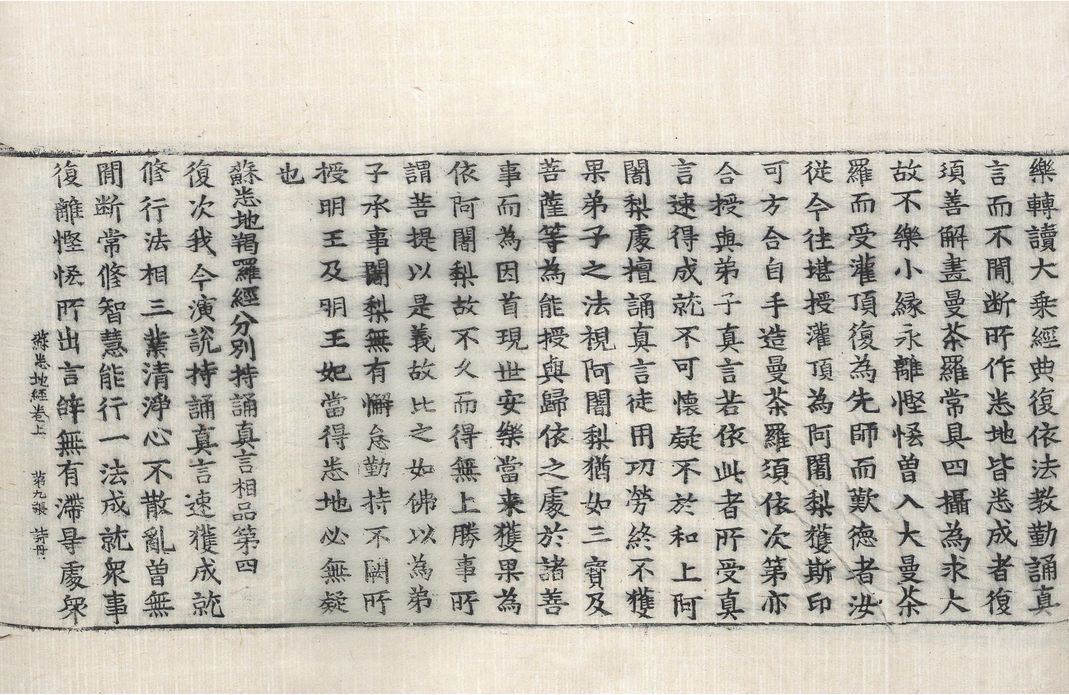 樂轉讀大乘經典復依法教勤誦真
言而不閒斷所作悉地皆悉成者復
須善解畫曼荼羅常具四攝為求大
故不樂小緣永離慳悋曽入大曼荼
羅而受灌頂復為先師而歎德者汝
從今往堪授灌頂為阿闍梨獲斯印
可方合自手造曼荼羅須依次第亦
合授與弟子真言若依此者所受真
言速得成就不可懷疑不於和上阿
闍梨處擅誦真言徒用功勞終不獲
果弟子之法視阿闍梨猶如三寶及
菩薩等為能授與歸依之處於諸善
事而為因首現世安樂當来獲果為
依阿闍梨故不久而得無上勝事所
謂菩提以是義故比之如佛以為弟
子承事闍梨無有懈怠勤持不闕所
授明王及明王妃當得悉地必無疑
也
蘇悉地羯羅經分別持誦真言相品第四
復次我今演說持誦真言速獲成就
修行法相三業清淨心不散亂曽無
閒斷常修智慧能行一法成就衆事
復離慳悋所出言辝無有滯㝵處衆
蘇悉地經卷上 第九張 詩丹